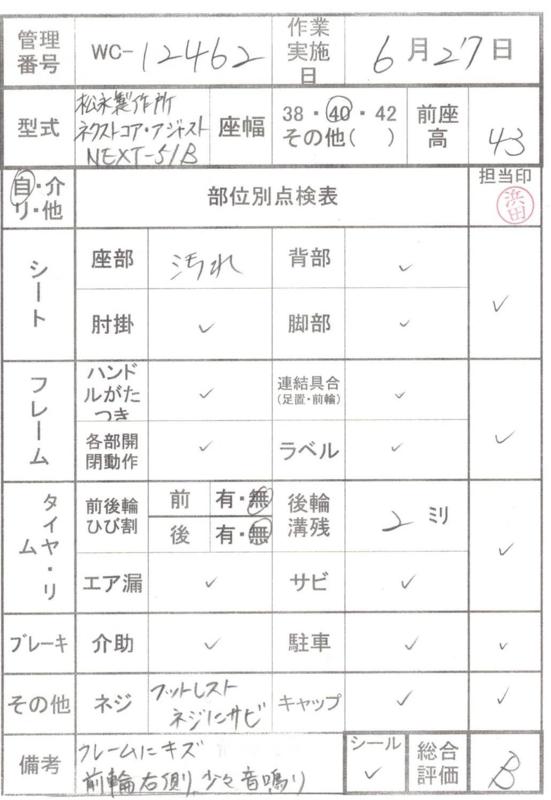 管理番号 WC-12462 作業実施日 6月27日
型式 松永製作所
ネクストコア・アジャスト
NEXT-51B
座幅 38・40・42
その他( )
前座高 43
自・介
リ・他
部位別点検表
担当印
浜田
シート 座部 汚れ 背部 ✓ ✓
肘掛 ✓ 脚部 ✓
フレーム ハンドルがたつき ✓ 連結具合
(足置・前輪) ✓ ✓
各部開閉動作 ✓ ラベル ✓
タイヤ・リム 前後輪ひび割 前 有・無 後輪溝残 2ミリ ✓
後 有・無
エア漏 ✓ サビ ✓
ブレーキ 介助 ✓ 駐車 ✓ ✓
その他 ネジ フットレスト
ネジにサビ キャップ ✓ ✓
備考 フレームにキズ
前輪右側、少々音鳴り
シール ✓ 総合評価 B